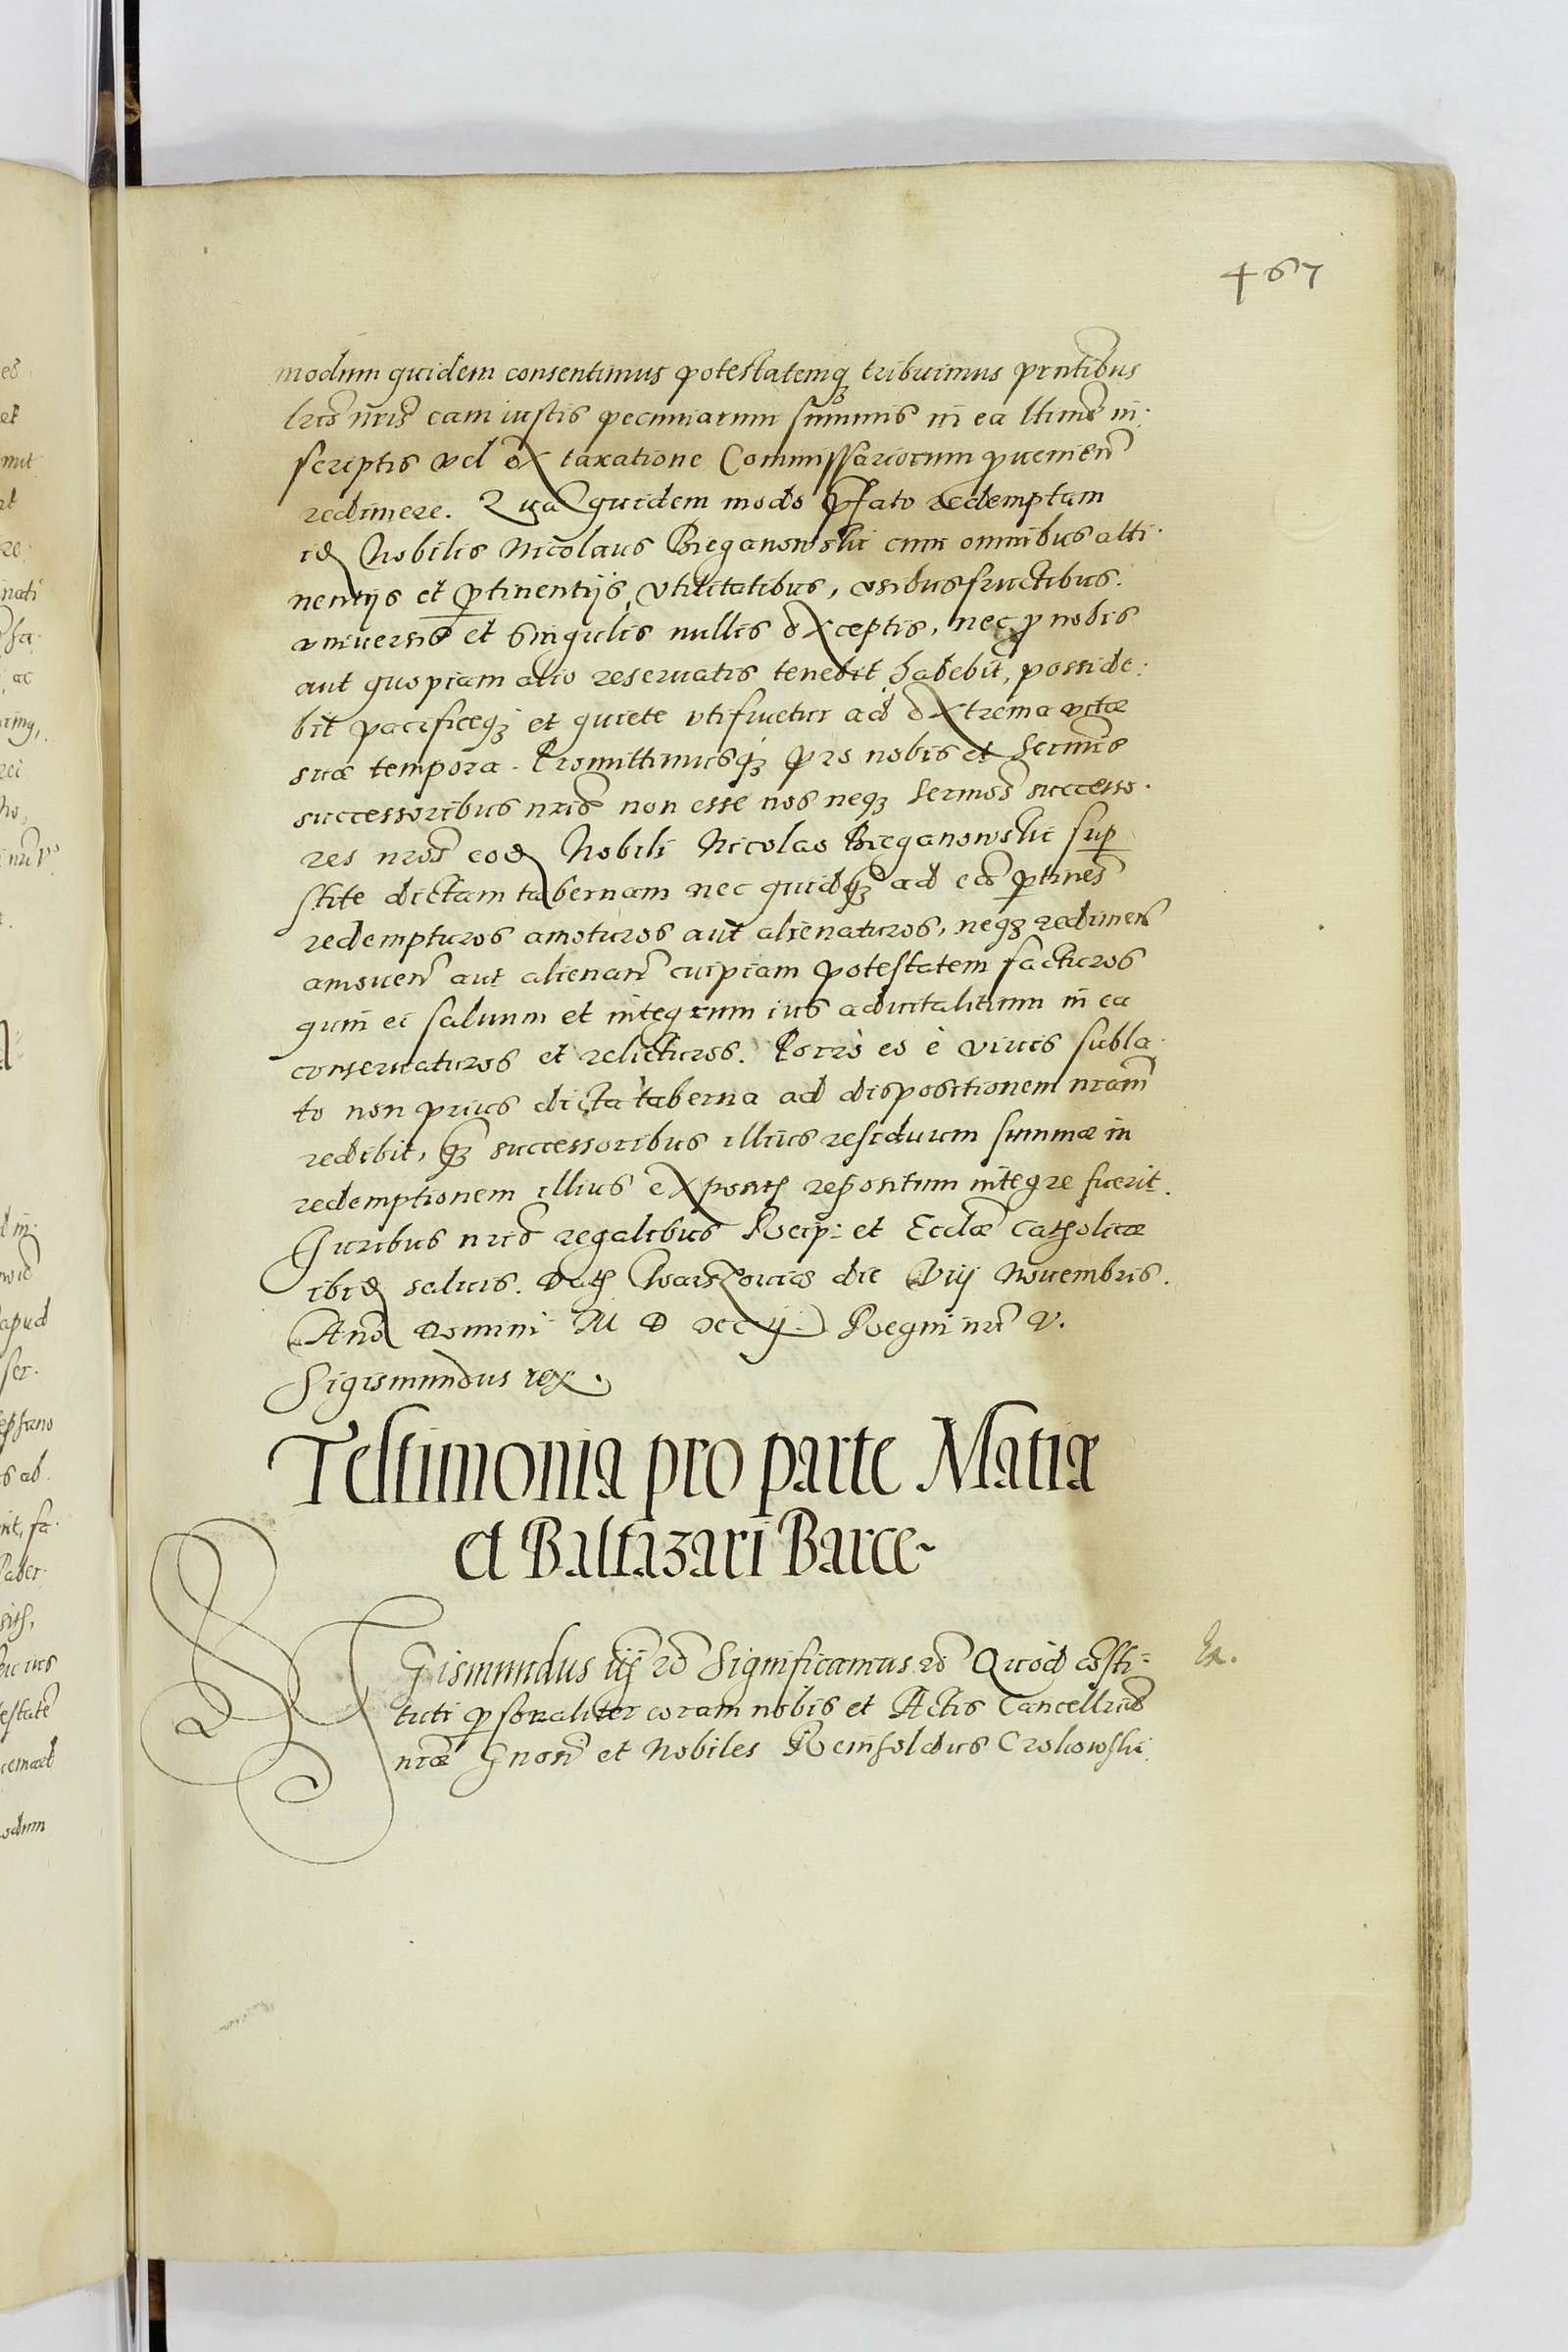 467
modum quidem consentimus potestatemq́ȝ tribuimus prntibus
lris nris eam iustis pecuniarum summis in ea ltime in:
scriptis vel ex taxatione Commissariorum pvenien
redimere. Qua quidem modo pfato redemptam
id Nobilis Nicolaus Bieganowski cum omnibus atti:
nentijs et ptinentijs, vtilitatibus, vsibusfructibus.
vniversis et singulis nullis exceptis, nec p nobis
aut quopiam alio reservatis tenebit habebit, posside:
bit pacificeqȝ et quiete vtifruetur ad extrema vitæ
suæ tempora. Promittimusqȝ pro nobis et Sermis
successoribus nris non esse nos neqȝ Sermos successo:
res nros eod Nobili Nicolao Bieganowski sup
stite dictam tabernam nec quidqȝ ad eā ptinens
redempturos amoturos aut alienaturos, neqȝ redimen
amoven aut alienan cuipiam potestatem facturos
quin ei salvum et integrum ius advitalitium in ea
conservaturos et relicturos. Porrò eo è vivis subla:
to non prius dicta taberna ad dispositionem nram
redibit, qȝ successoribus illius residuum summæ in
redemptionem illius exposit repositum integre fuerit.
Juribus nris regalibus Reip: et Ecclæ Catholicæ
ibid salvis. Dat Warszoviæ die Viij Novembris.
Ano Domini M D xcij. Regni nri V.
Sigismundus rex.
Testimonia pro parte Matiæ
et Baltazari Barce~
SIGismundus iij rc̄ Significamus rc̄ Quòd consti: Ex.
tuti psonaliter coram nobis et Actis Cancellriæ
nræ Gnosi et Nobiles Reinholdus Crokowski